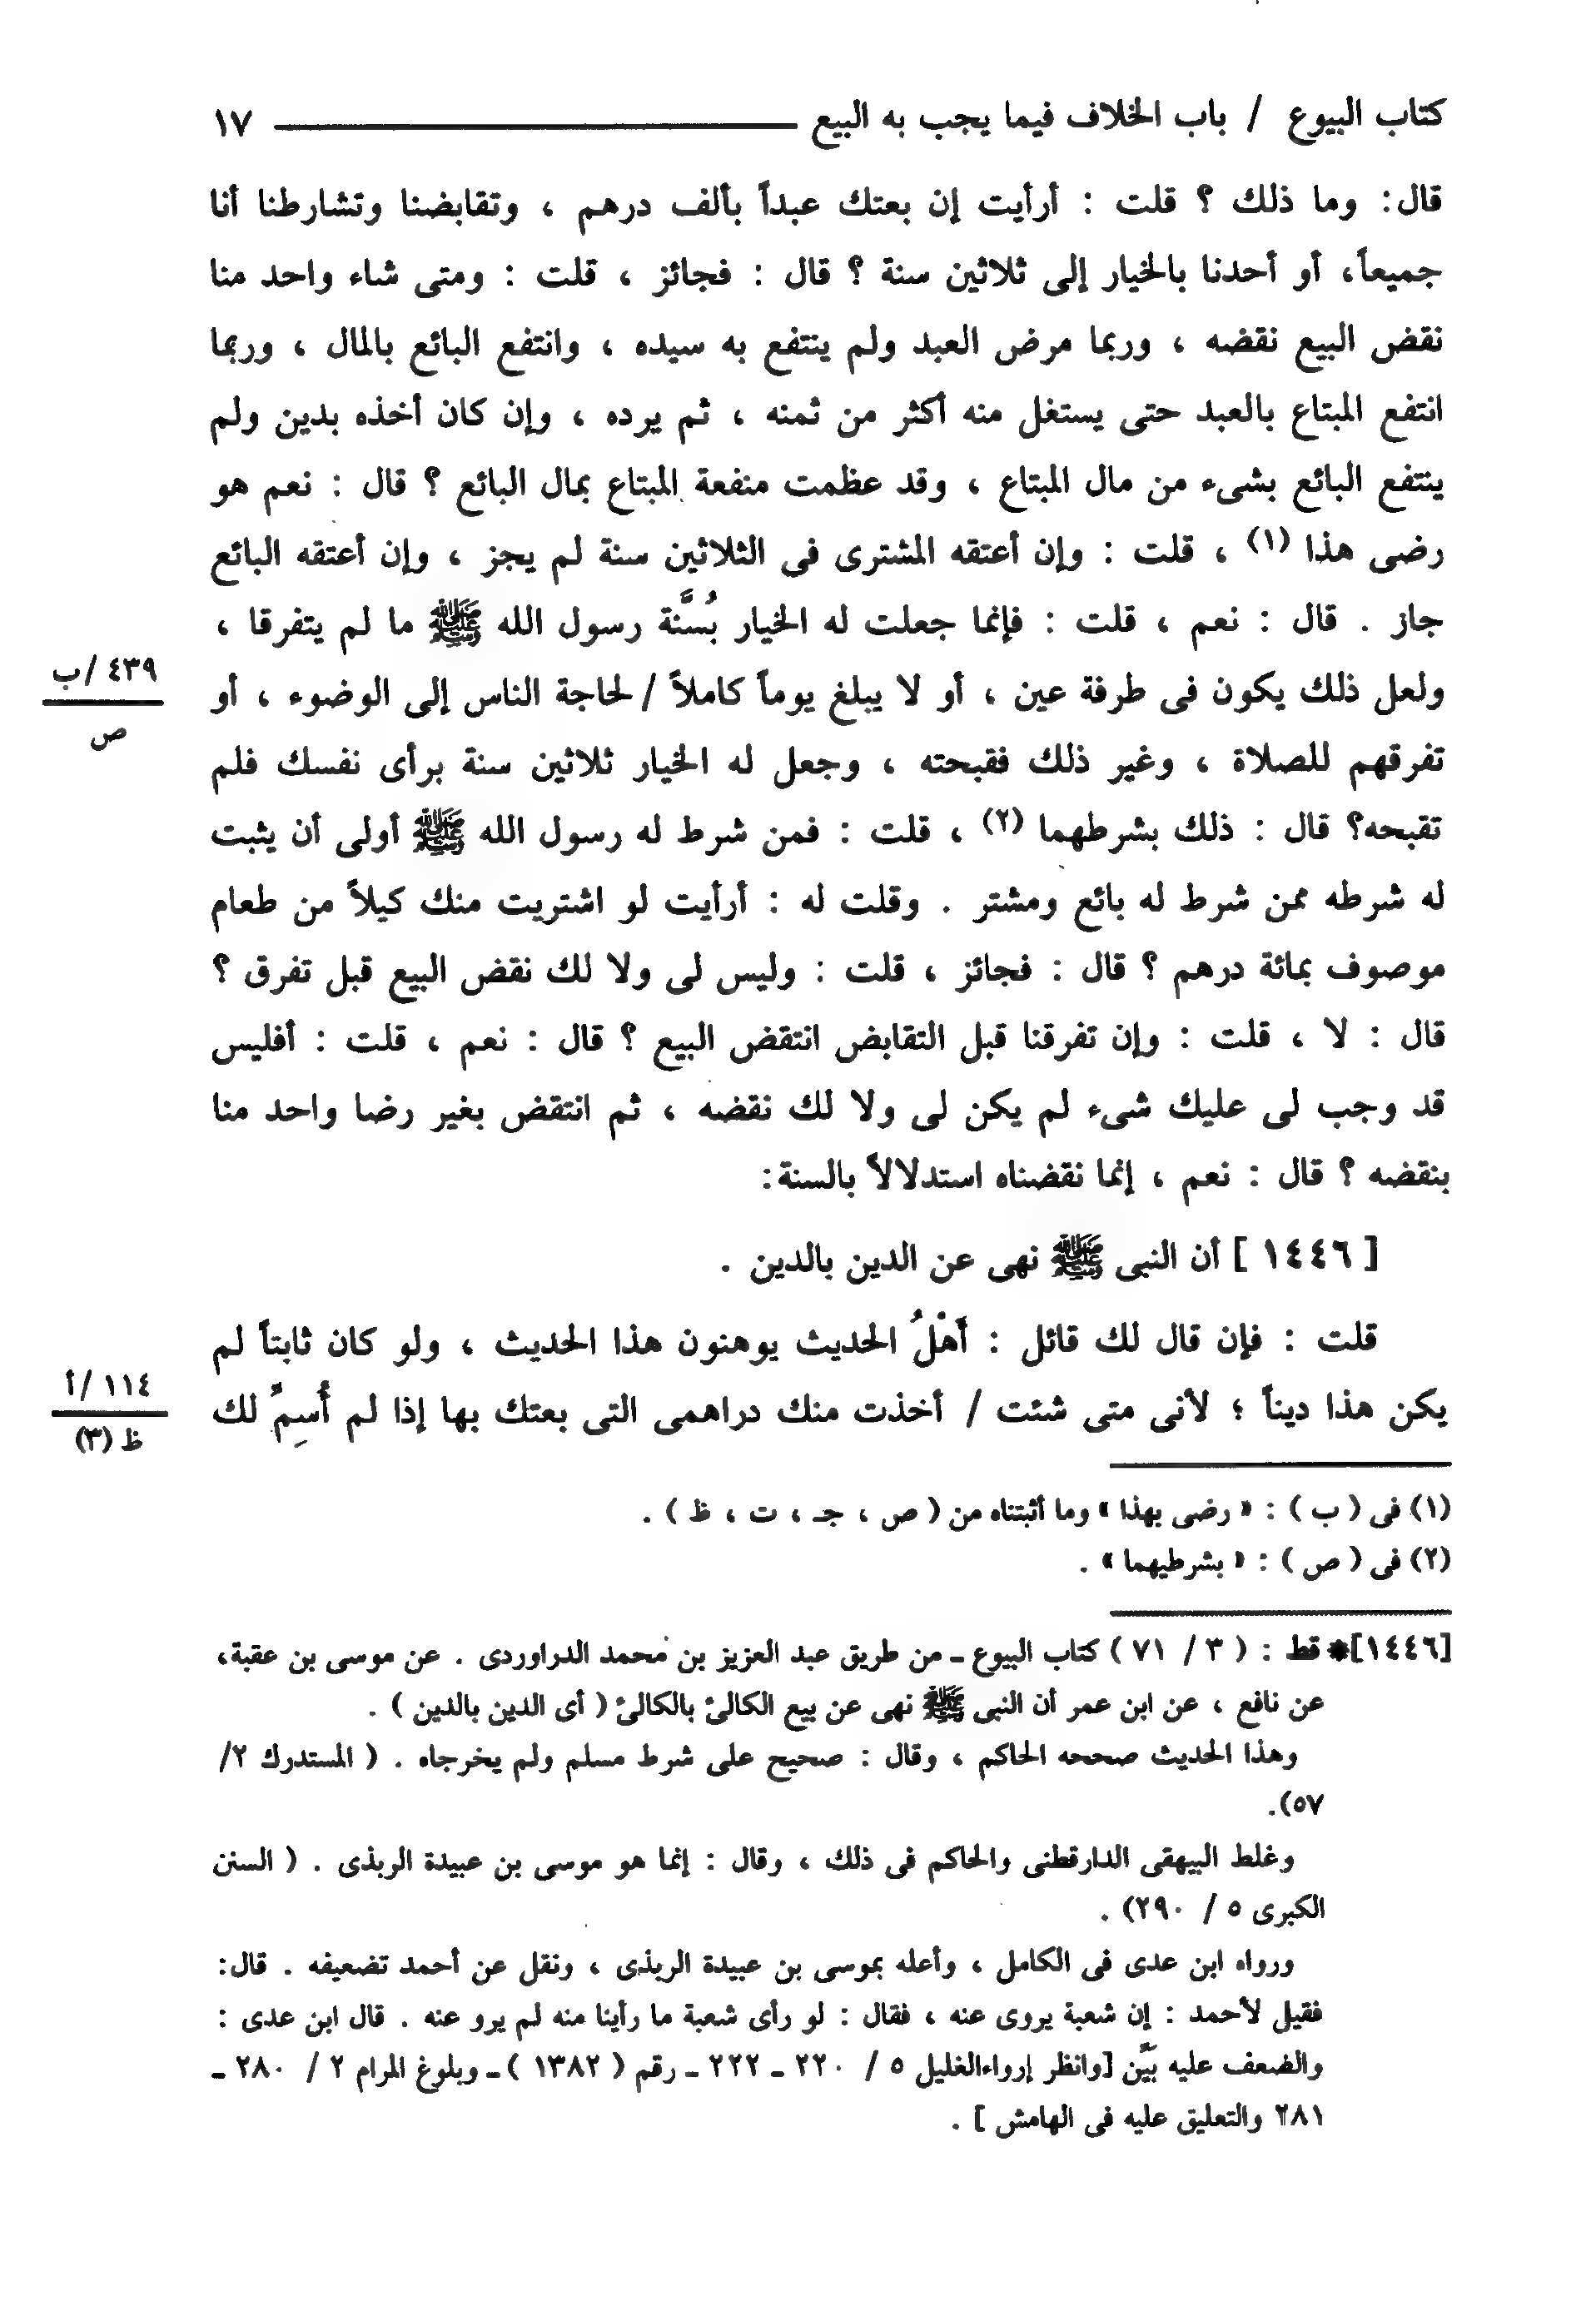 كتاب البيوع / باب الخلاف فيما يجب به البيع ١٧
قال: وما ذلك ؟ قلت : أرأيت إن بعتك عبداً بألف درهم ، وتقابضنا وتشارطنا أنا
جميعاً، أو أحدنا بالخيار إلى ثلاثين سنة ؟ قال : فجائز ، قلت : ومتى شاء واحد منا
نقض البيع نقضه ، وربما مرض العبد ولم ينتفع به سيده ، وانتفع البائع بالمال ، وربما
انتفع المبتاع بالعبد حتى يستغل منه أكثر من ثمنه ، ثم يرده ، وإن كان أخذه بدين ولم
ينتفع البائع بشىء من مال المبتاع ، وقد عظمت منفعة المبتاع بمال البائع ؟ قال : نعم هو
رضى هذا (١) ، قلت : وإن أعتقه المشترى فى الثلاثين سنة لم يجز ، وإن أعتقه البائع
جاز . قال : نعم ، قلت : فإنما جعلت له الخيار بُسنَّة رسول الله ﷺ ما لم يتفرقا ،
ولعل ذلك يكون فى طرفة عين ، أو لا يبلغ يوماً كاملاً / لحاجة الناس إلى الوضوء ، أو
٤٣٩ /ب
ص
تفرقهم للصلاة ، وغير ذلك فقبحته ، وجعل له الخيار ثلاثين سنة برأى نفسك فلم
تقبحه؟ قال : ذلك بشرطهما (٢) ، قلت : فمن شرط له رسول الله ﷺ أولى أن يثبت
له شرطه ممن شرط له بائع ومشتر . وقلت له : أرأيت لو اشتريت منك كيلاً من طعام
موصوف بمائة درهم ؟ قال : فجائز ، قلت : وليس لى ولا لك نقض البيع قبل تفرق ؟
قال : لا ، قلت : وإن تفرقنا قبل التقابض انتقض البيع ؟ قال : نعم ، قلت : أفليس
قد وجب لى عليك شىء لم يكن لى ولا لك نقضه ، ثم انتقض بغير رضا واحد منا
بنقضه ؟ قال : نعم ، إنما نقضناه استدلالاً بالسنة:
[ ١٤٤٦ ] أن النبى ﷺ نهى عن الدين بالدين .
قلت : فإن قال لك قائل : أَهْلُ الحديث يوهنون هذا الحديث ، ولو كان ثابتاً لم
يكن هذا ديناً ؛ لأنى متى شئت / أخذت منك دراهمى التى بعتك بها إذا لم أُسِمِّ لك
١١٤ /أ
ظ (٣)
(١) فى ( ب ) : « رضى بهذا » وما أثبتناه من ( ص ، جـ ، ت ، ظ ) .
(٢) فى ( ص ) : « بشرطيهما » .
[١٤٤٦]* قط : ( ٣ / ٧١ ) كتاب البيوع ـ من طريق عبد العزيز بن محمد الدراوردى . عن موسى بن عقبة،
عن نافع ، عن ابن عمر أن النبى ﷺ نهى عن بيع الكالئ بالكالئ ( أى الدين بالدين ) .
وهذا الحديث صححه الحاكم ، وقال : صحيح على شرط مسلم ولم يخرجاه . ( المستدرك ٢/
٥٧).
وغلط البيهقى الدارقطنى والحاكم فى ذلك ، وقال : إنما هو موسى بن عبيدة الربذى . ( السنن
الكبرى ٥ / ٢٩٠) .
ورواه ابن عدى فى الكامل ، وأعله بموسى بن عبيدة الربذى ، ونقل عن أحمد تضعيفه . قال:
فقيل لأحمد : إن شعبة يروى عنه ، فقال : لو رأى شعبة ما رأينا منه لم يرو عنه . قال ابن عدى :
والضعف عليه بَيِّن [وانظر إرواءالغليل ٥ / ٢٢٠ ـ ٢٢٢ ـ رقم ( ١٣٨٢ ) ـ وبلوغ المرام ٢ / ٢٨٠ ـ
٢٨١ والتعليق عليه فى الهامش ] .